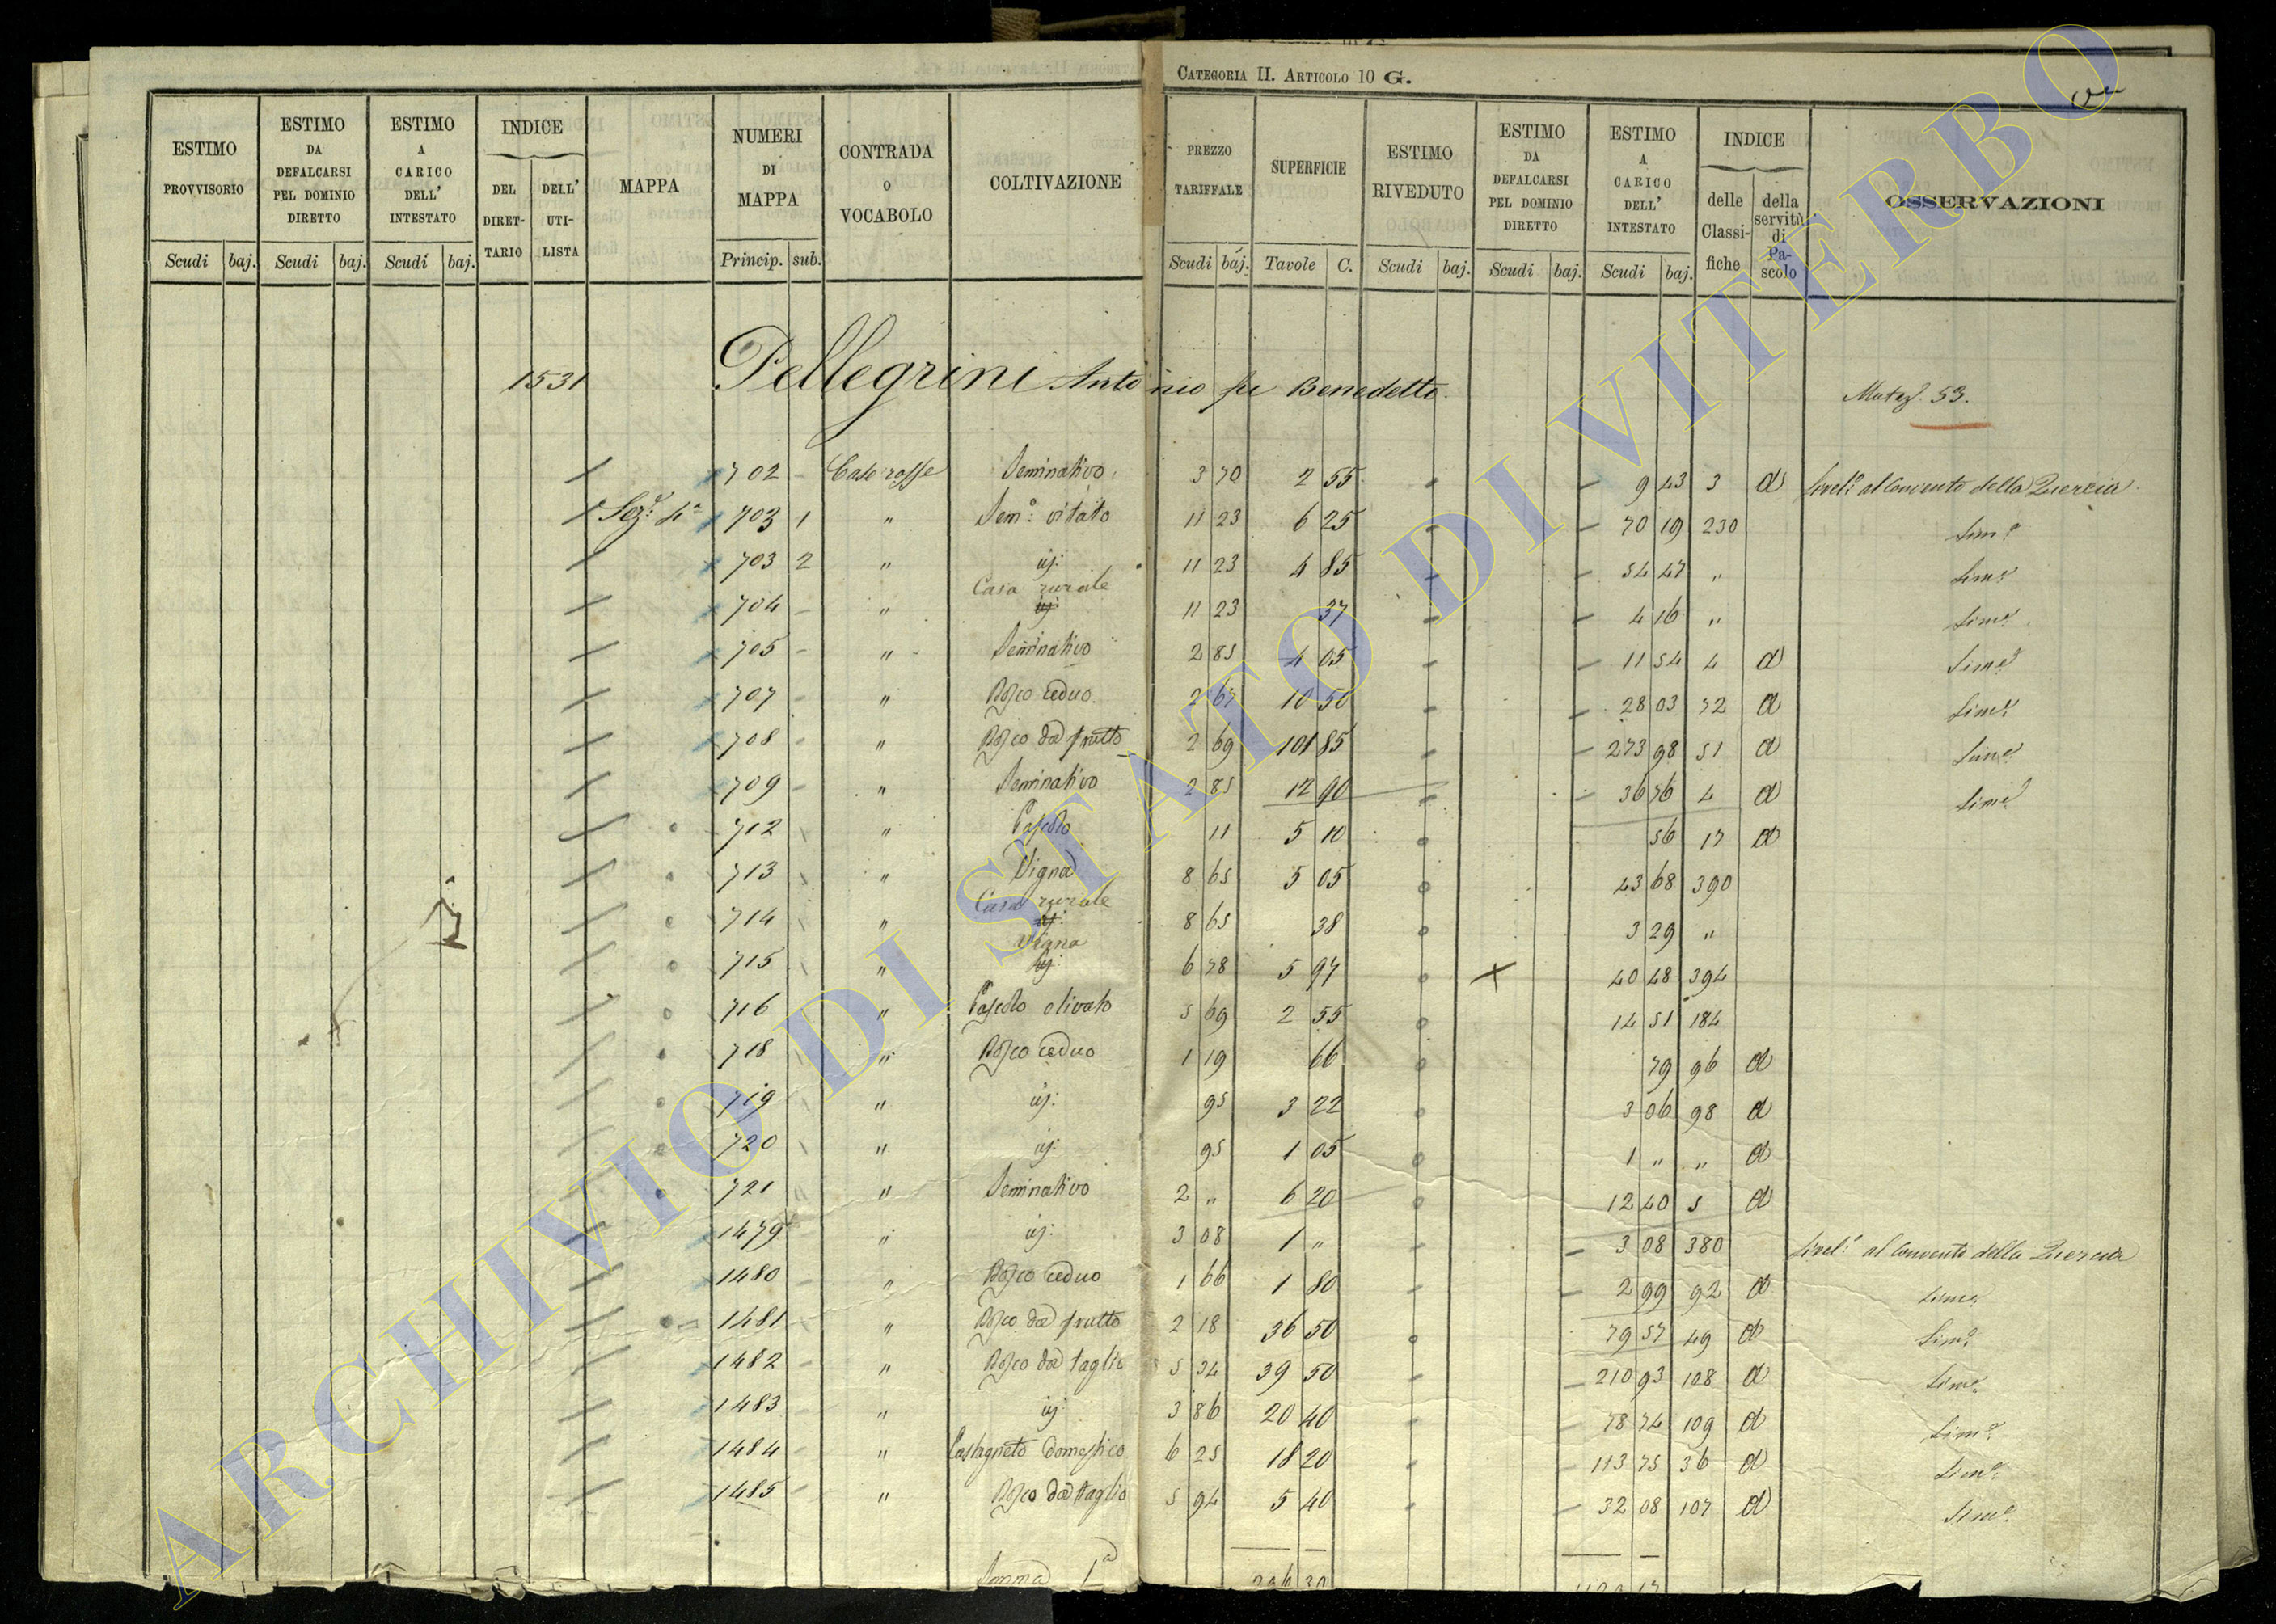 CATEGORIA II. ARTICOLO 10 G.
ESTIMO PROVVISORIO Scudi baj.
ESTIMO DA DEFALCARSI PEL DOMINIO DIRETTO Scudi baj.
ESTIMO A CARICO DELL' INTESTATO Scudi baj.
INDICE DEL DIRET-TARIO DELL' UTI-LISTA
MAPPA
NUMERI DI MAPPA Princip. sub.
CONTRADA O VOCABOLO
COLTIVAZIONE
PREZZO TARIFFALE Scudi baj.
SUPERFICIE Tavole C.
ESTIMO RIVEDUTO Scudi baj.
ESTIMO DA DEFALCARSI PEL DOMINIO DIRETTO Scudi baj.
ESTIMO A CARICO DELL' INTESTATO Scudi baj.
INDICE delle Classi-fiche della servitù di Pa-scolo
OSSERVAZIONI
1531 Pellegrini Antonio fu Benedetto. Mutaz. 53.
702 - Case rosse Seminativo 3 70 2 55 - - 9 43 3 a Livel.º al Convento della Quercia
Sez.ª 4ª 703 1 " Sem.º vitato 11 23 6 25 - - 70 19 230 Sim.e
703 2 " id: 11 23 4 85 - - 54 47 " Sim.e
704 - " Casa rurale 11 23 37 - - 4 16 " Sim.e
705 - " Seminativo 2 85 4 05 - - 11 54 4 a Sim.e
707 - " Bosco ceduo. 2 67 10 50 - - 28 03 72 a Sim.e
708 - " Bosco da frutto 2 69 101 85 - - 273 98 51 a Sim.e
709 - " Seminativo 2 85 12 90 - - 36 76 4 a Sim.e
712 " Pascolo 11 5 10 56 17 a
713 " Vigna 8 65 5 05 43 68 390
714 " Casa rurale 8 65 38 3 29 "
715 " Vigna 6 78 5 97 x 40 48 394
716 " Pascolo olivato 5 69 2 55 14 51 184
718 " Bosco ceduo 1 19 66 79 96 a
719 " id: 95 3 22 3 06 98 a
720 " id: 95 1 05 1 " " a
721 " Seminativo 2 " 6 20 12 40 5 a
1479 " id: 3 08 1 " - - 3 08 380 Livel.º al Convento della Quercia
1480 - " Bosco ceduo 1 66 1 80 - - 2 99 92 a Sim.e
1481 - " Bosco da frutto 2 18 36 50 79 57 49 a Sim.e
1482 - " Bosco da taglio 5 34 39 50 - - 210 93 108 a Sim.e
1483 - " id: 3 86 20 40 - - 78 74 109 a Sim.e
1484 - " Castagneto domestico 6 25 18 20 - - 113 75 36 a Sim.e
1485 - " Bosco da taglio 5 94 5 40 - - 32 08 107 a Sim.e
Somma 1ª 296 30
ARCHIVIO DI STATO DI VITERBO